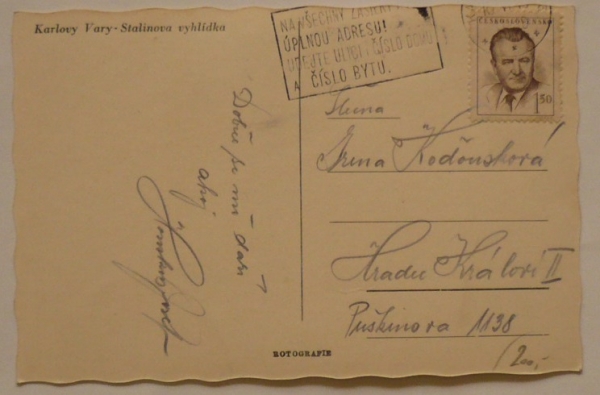 Karlovy Vary - Stalinova vyhlídka
NA VŠECHNY ZÁSILKY
ÚPLNOU ADRESU!
UDEJTE ULICI, ČÍSLO DOMU
A ČÍSLO BYTU.
ČESKOSLOVENSKO
1.50
Dobře se mi daří
ahoj
Slečna
Irena
Hradec Králové II
Puškinova 1138
ROTOGRAFIE
200,-